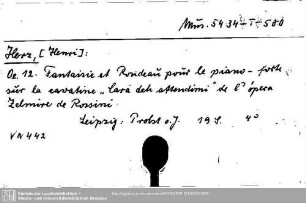 Mus. 5434-T-500
Herz, [Henri]:
Oe. 12. Fantaisie et Rondeau pour le piano-forte
sur la cavatine "Cara deh attendimi" de l'opera
Zelmire de Rossini.
Leipzig: Probst o.J. 19 S. 4°
VN 442
Sächsische Landesbibliothek –
Staats- und Universitätsbibliothek Dresden